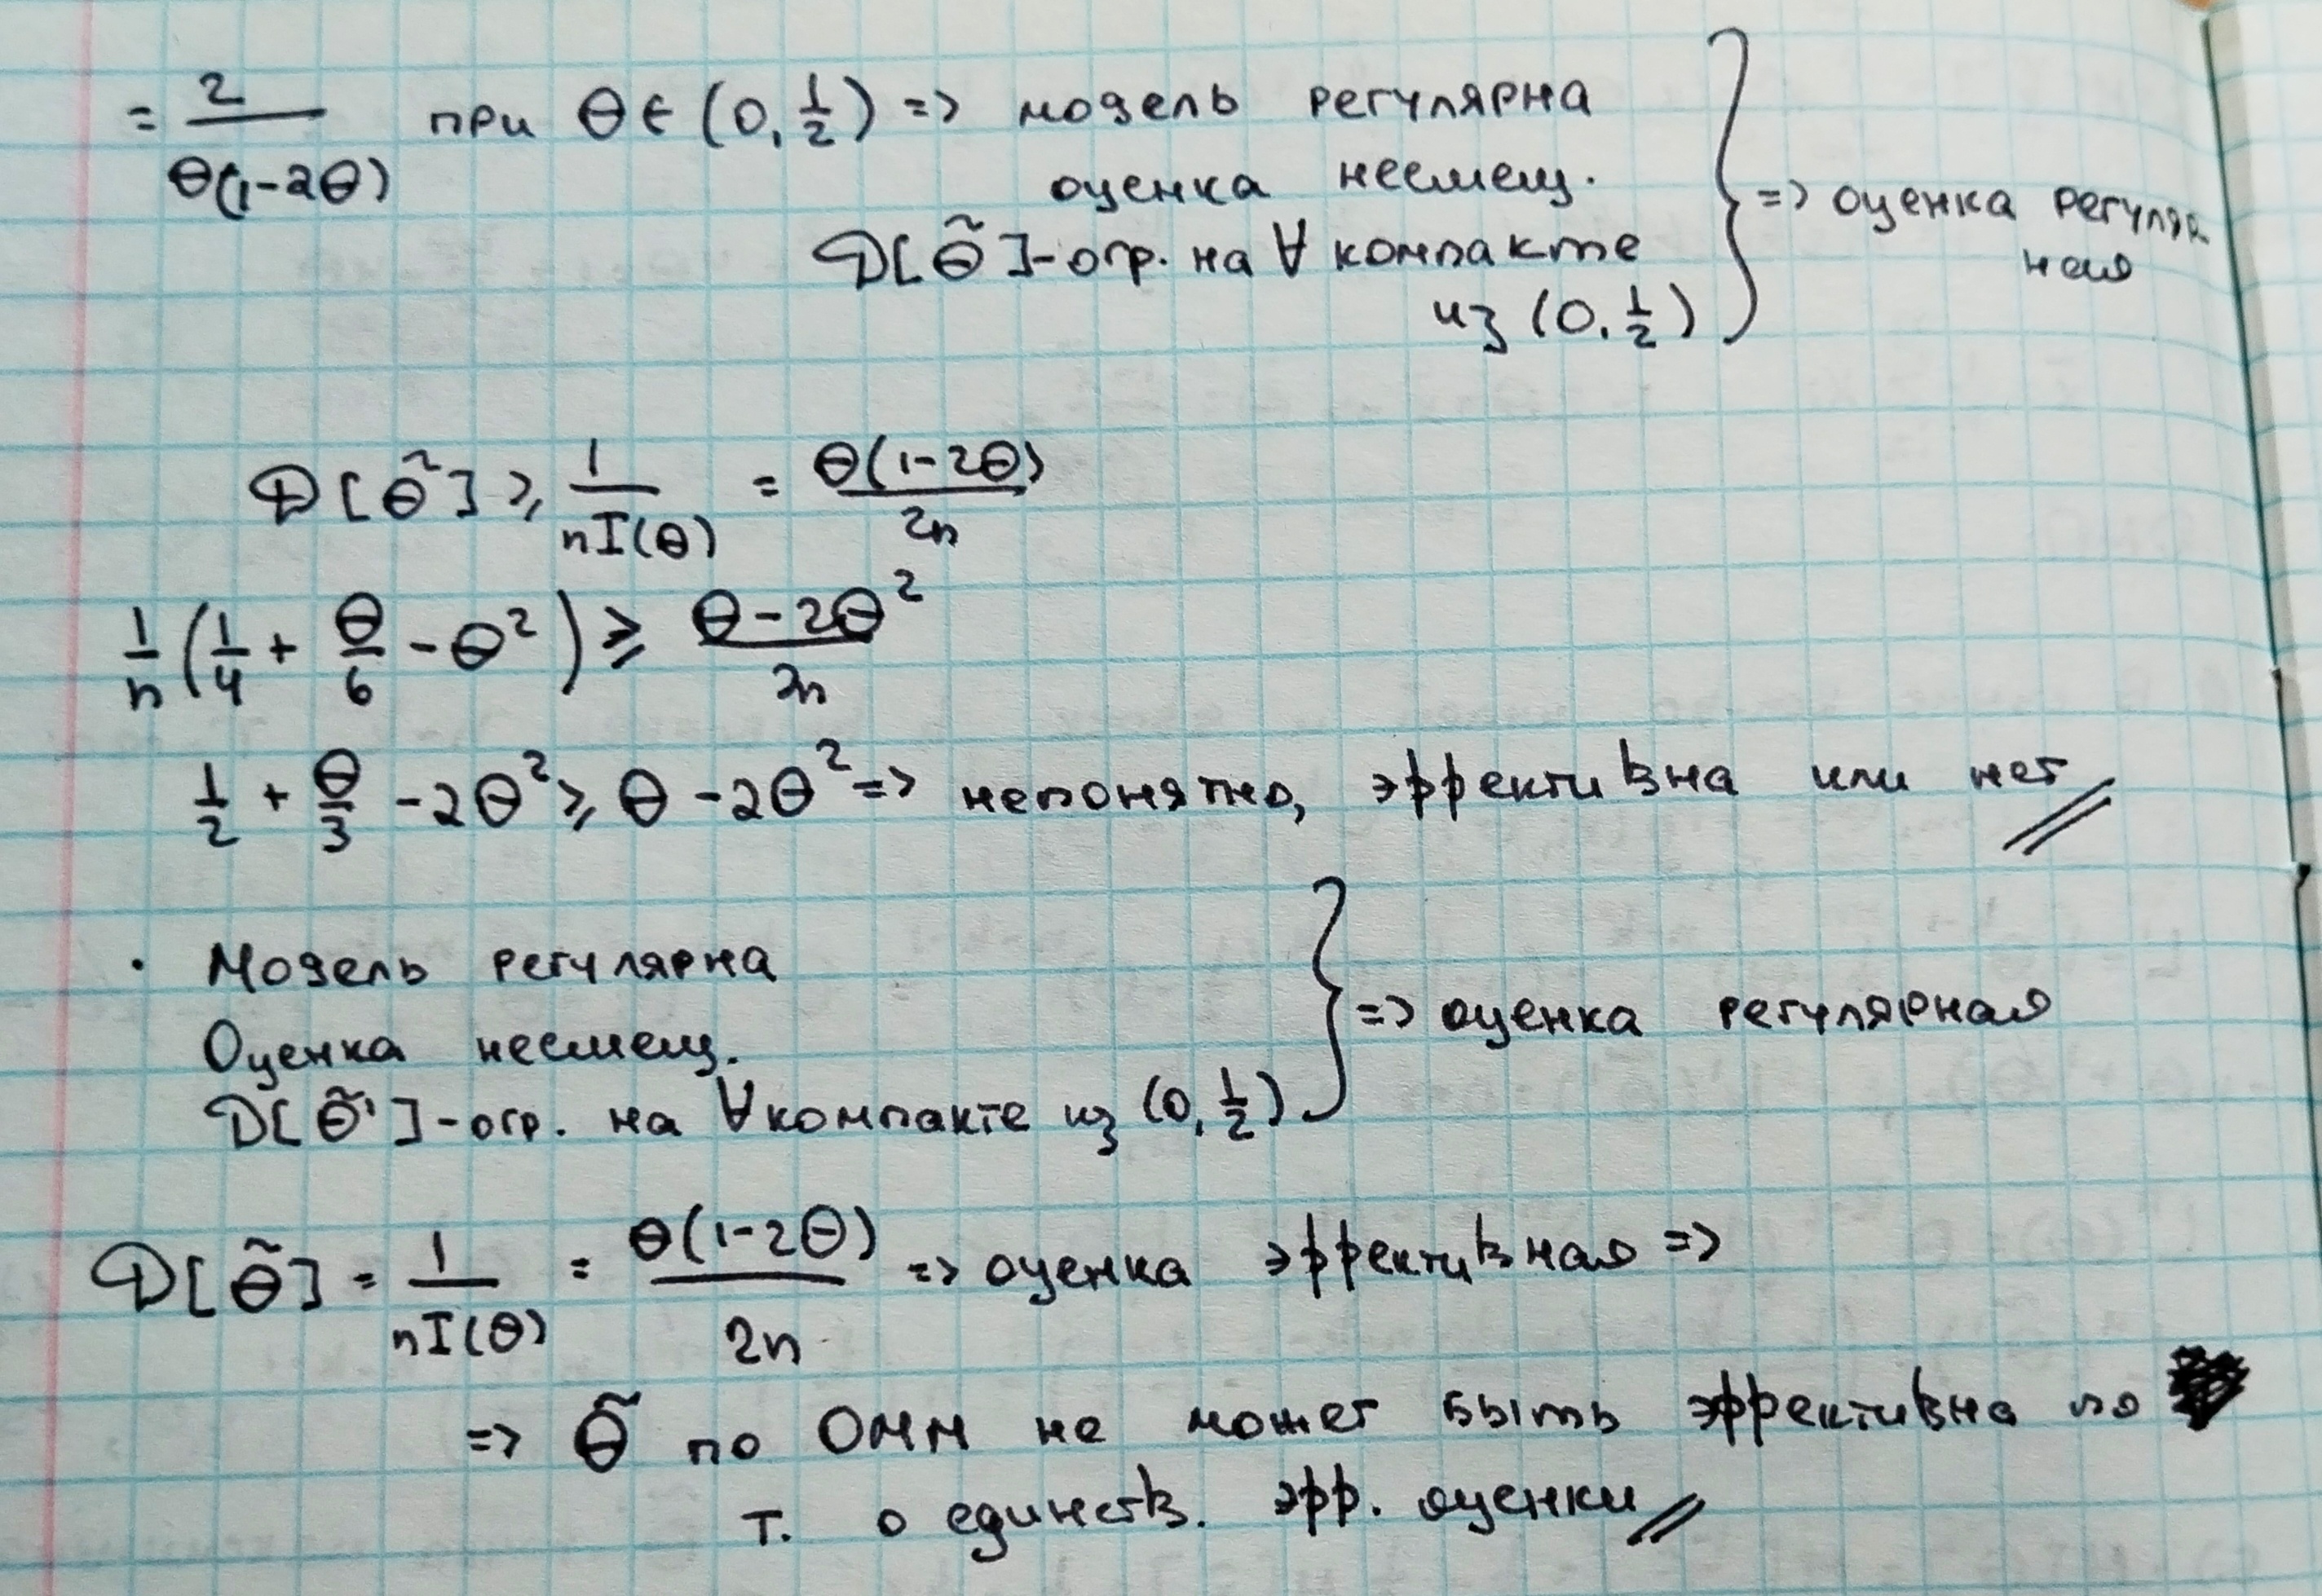 = 2/(θ(1-2θ)) при θ ∈ (0, 1/2) => модель регулярна
оценка несмещ.
D[θ̃]-огр. на ∀ компакте
из (0, 1/2)
=> оценка регуляр
ная
D[θ̃] ⩾ 1/(nI(θ)) = θ(1-2θ)/2n
1/n (1/4 + θ/6 - θ²) ⩾ (θ-2θ²)/2n
1/2 + θ/3 - 2θ² ⩾ θ - 2θ² => непонятно, эффективна или нет
• Модель регулярна
Оценка несмещ.
D[θ̃']-огр. на ∀ компакте из (0, 1/2)
=> оценка регулярная
D[θ̃] = 1/(nI(θ)) = θ(1-2θ)/2n => оценка эффективная =>
=> θ̃ по ОММ не может быть эффективна по
т. о единств. эфф. оценки